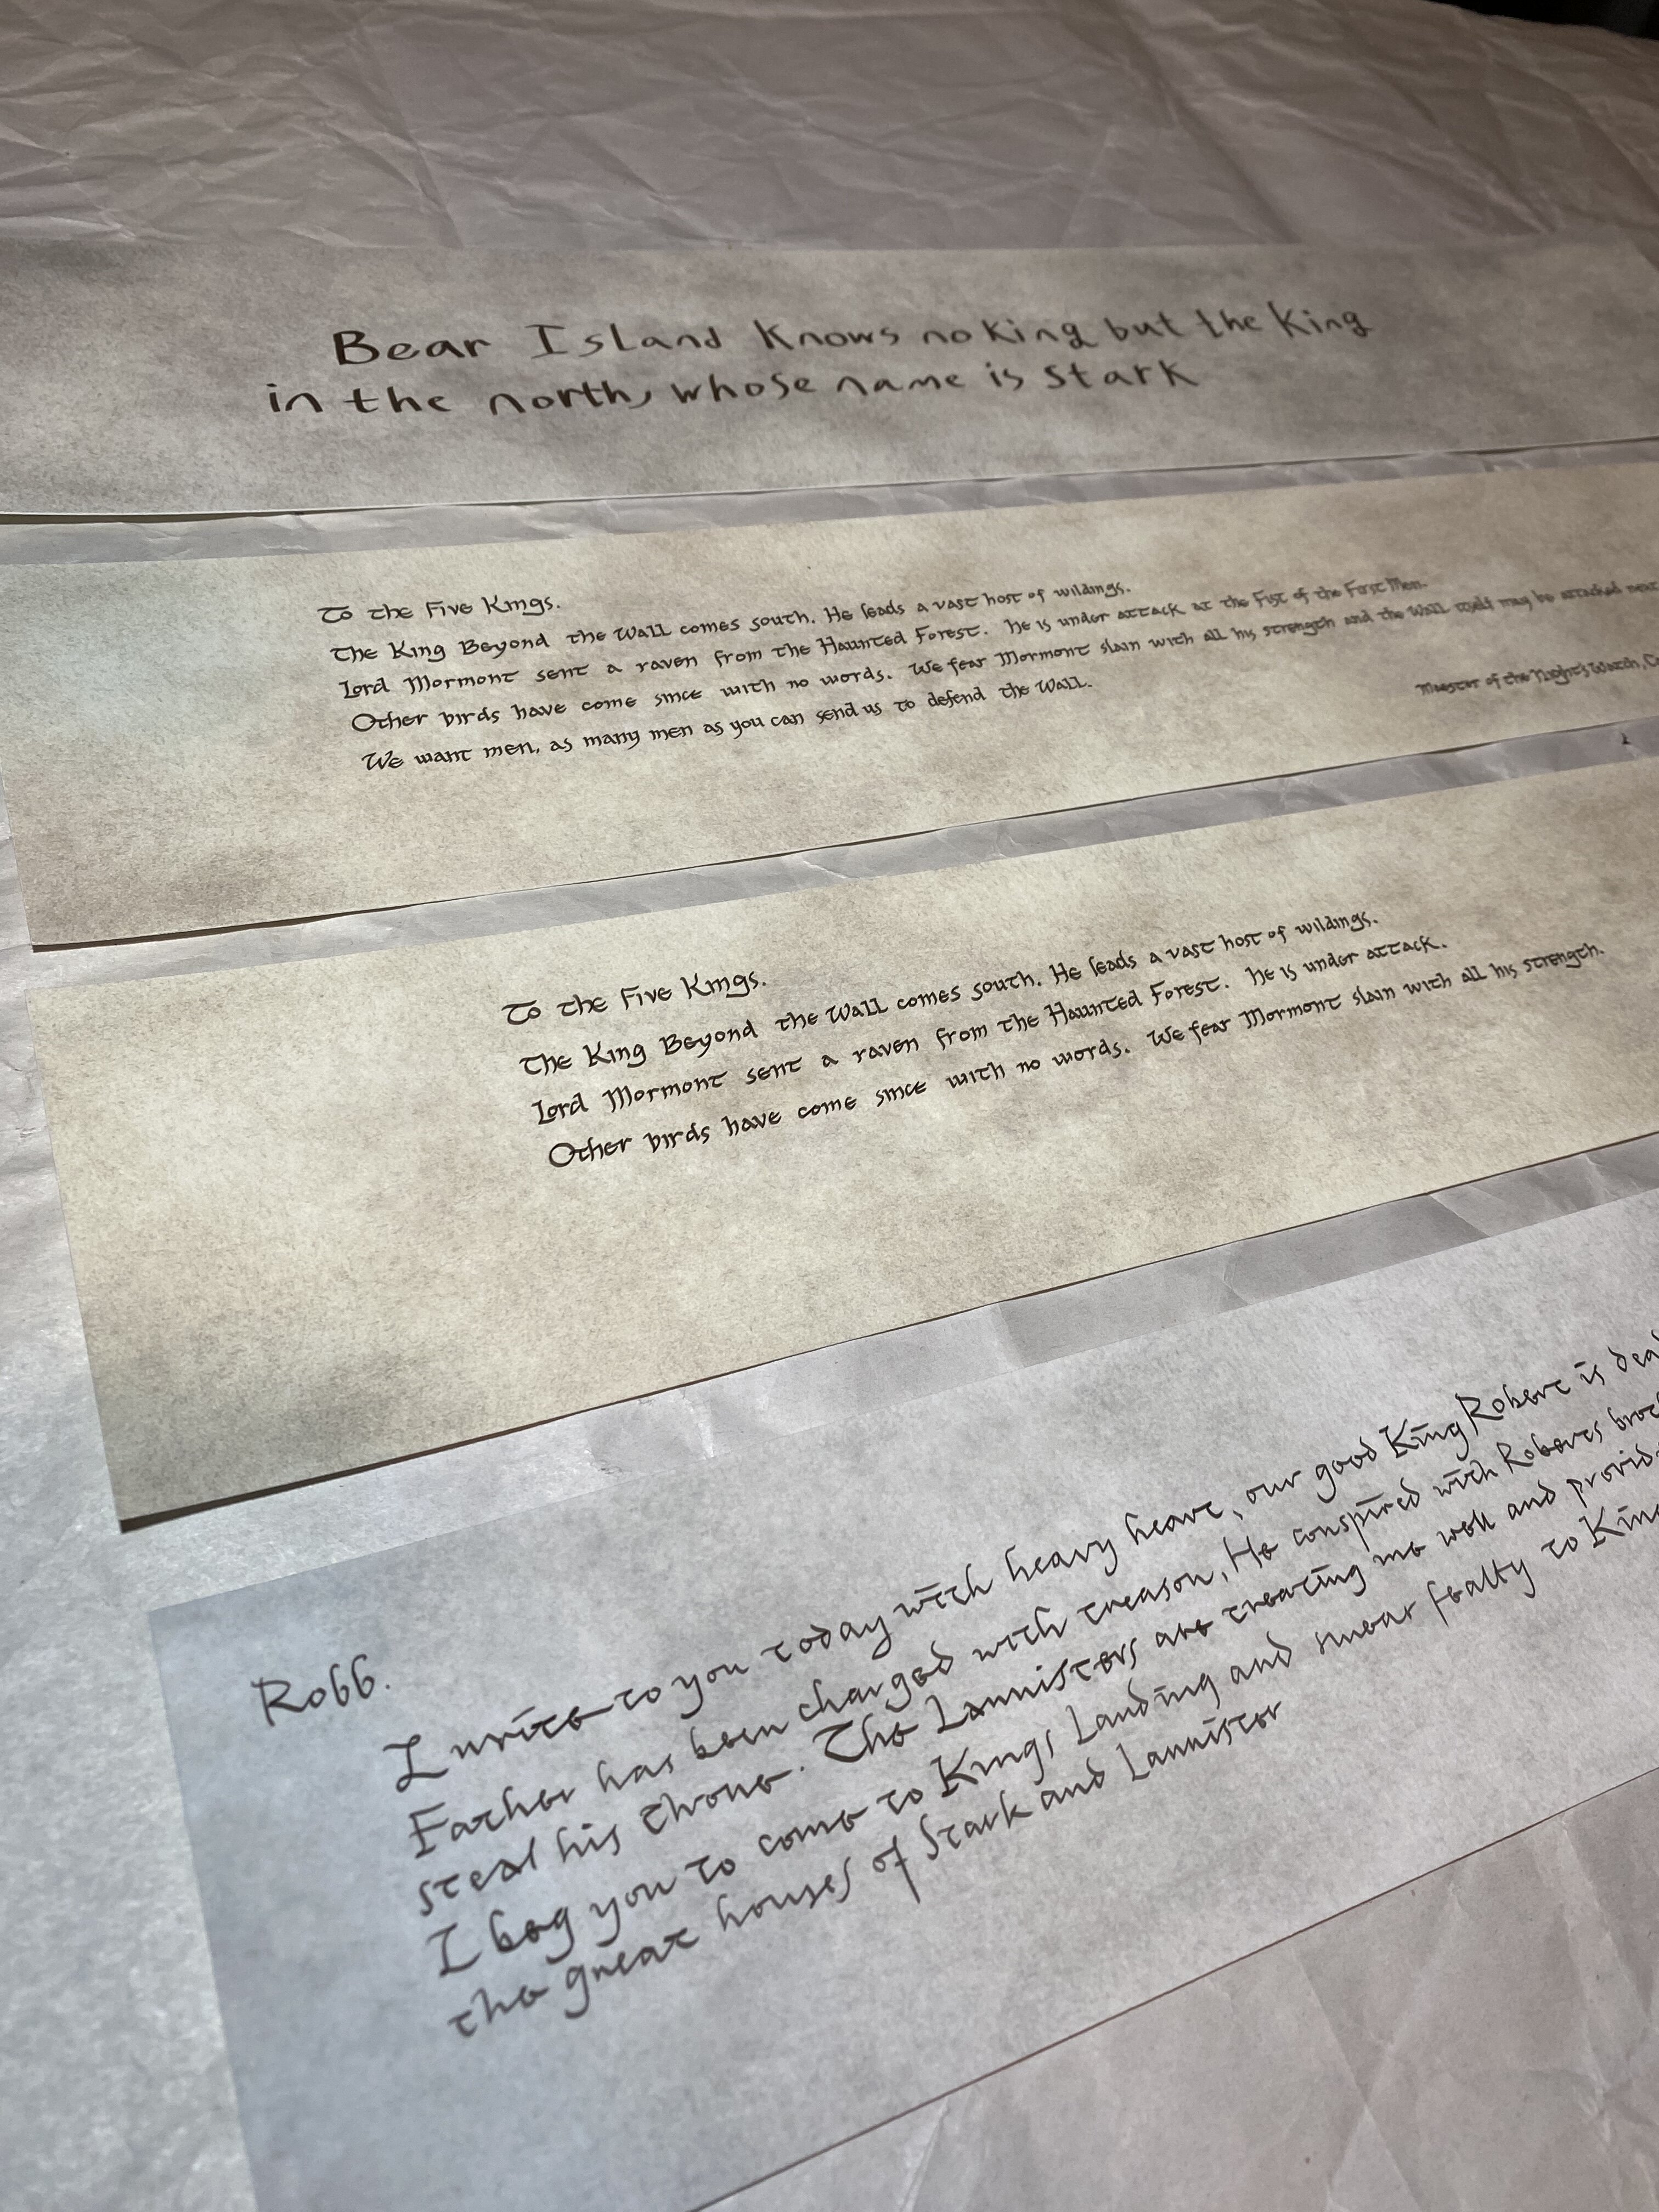 Bear Island knows no King but the King
in the north, whose name is Stark
To the Five Kings.
The King Beyond the Wall comes south. He leads a vast host of wildings.
Lord Mormont sent a raven from the Haunted Forest. he is under attack at the Fist of the First Men.
Other birds have come since with no words. We fear Mormont slain with all his strength and the Wall itself may be attacked next
We want men, as many men as you can send us to defend the Wall.
Maester of the Night's Watch,
To the Five Kings.
The King Beyond the Wall comes south. He leads a vast host of wildings.
Lord Mormont sent a raven from the Haunted Forest. he is under attack.
Other birds have come since with no words. We fear Mormont slain with all his strength.
Robb.
I write to you today with heavy heart, our good King Robert is
Father has been charged with treason. He conspired with Roberts
steal his throne. The Lannisters are treating me well and
I beg you to come to Kings Landing and swear fealty to
the great houses of Stark and Lannister